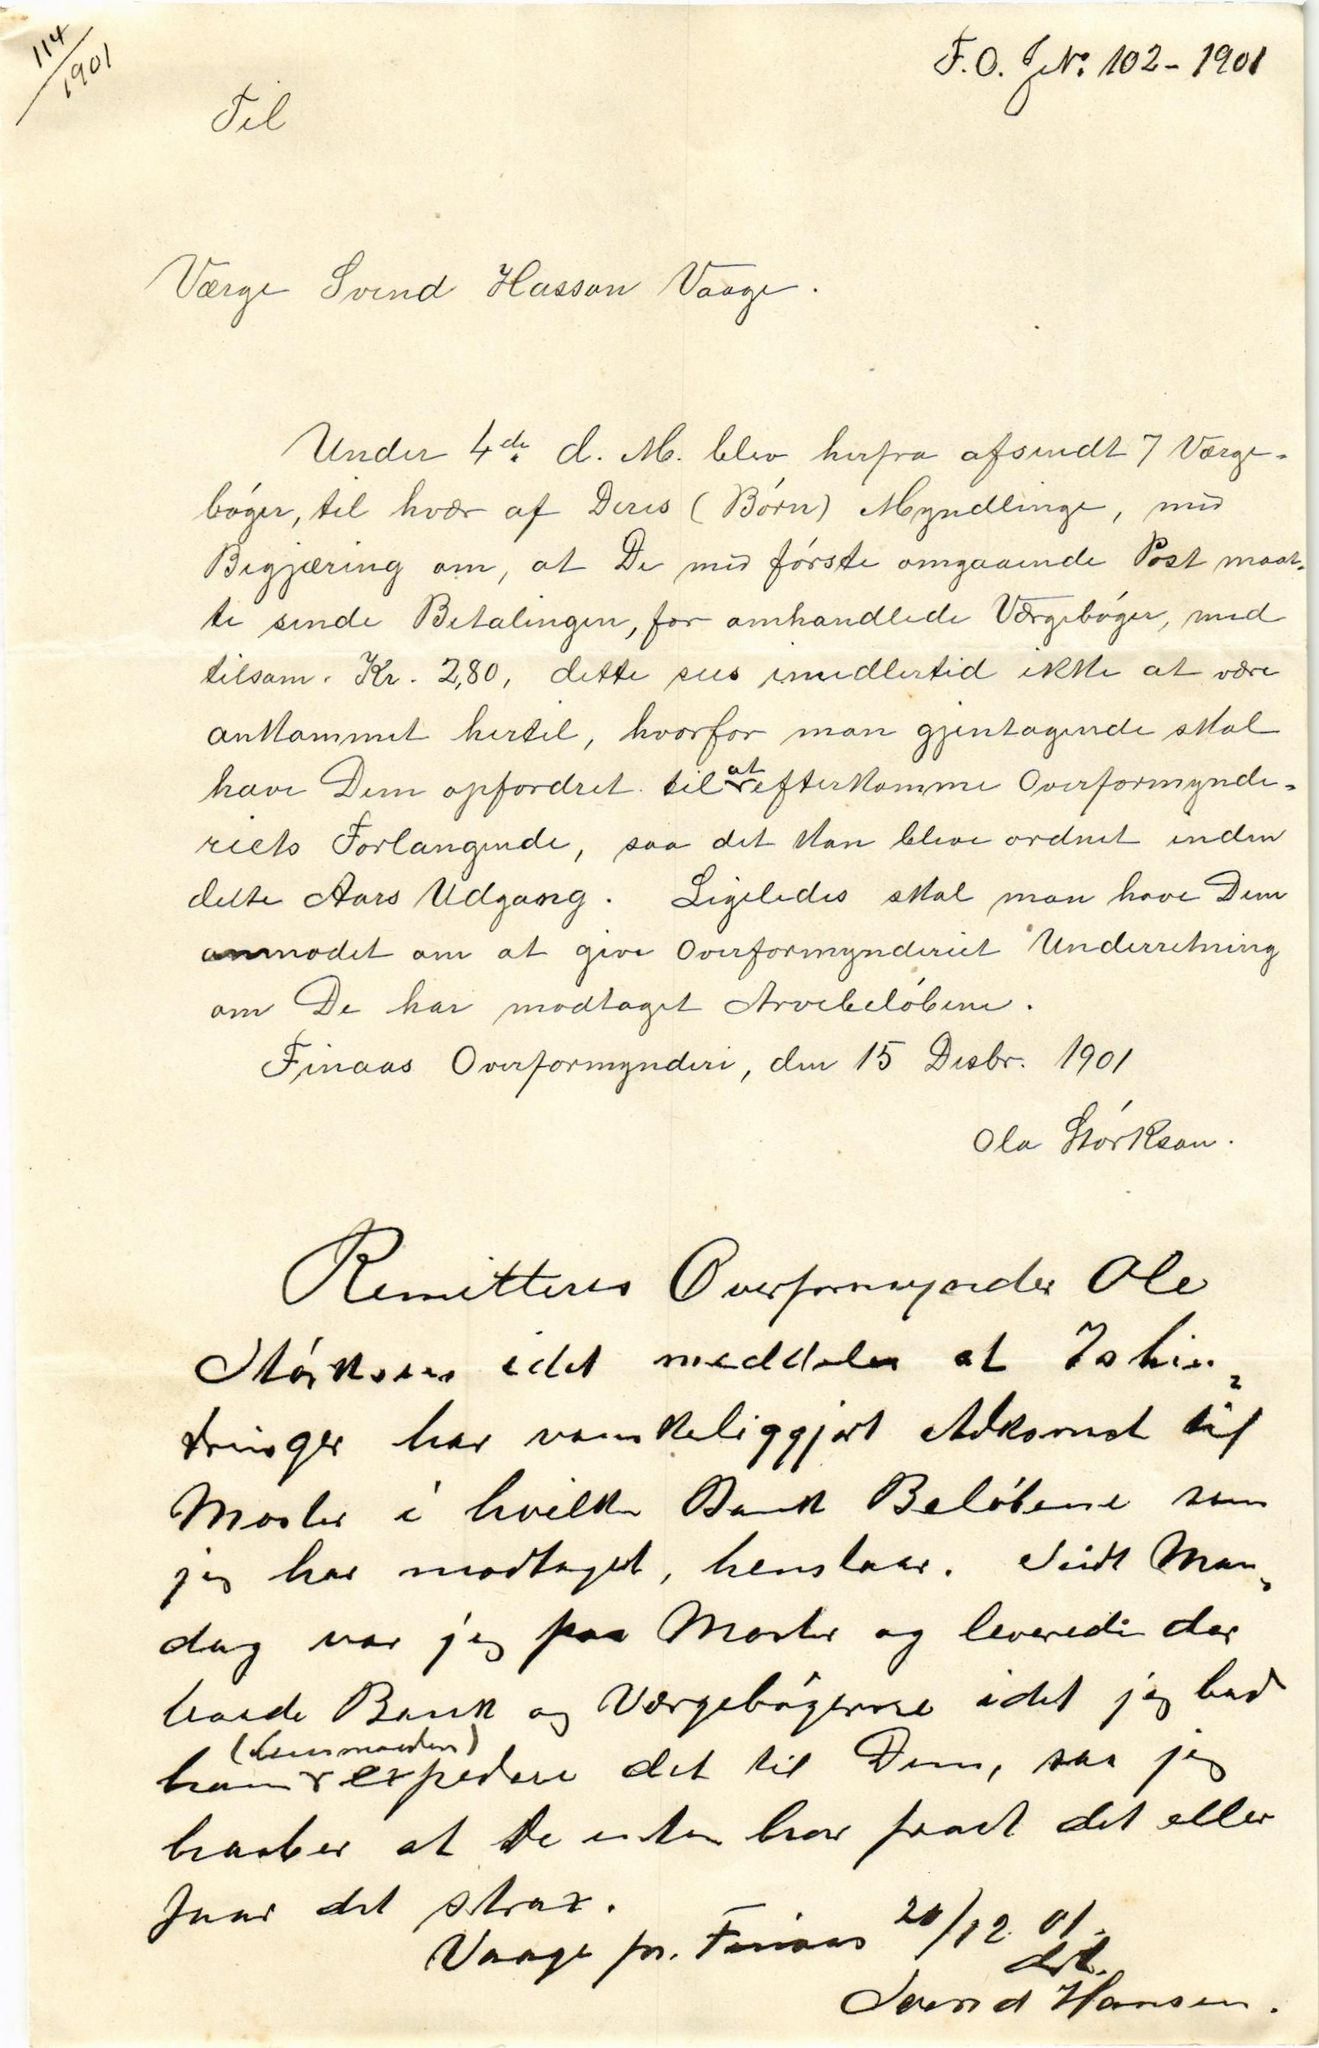 114/1901
F. O. J No. 102 - 1901
Til
Værge Svend Hasson Vaage.
Under 4de d. M. blev herfra afsendt 7 Værge-
bøger, til hvær af Deres (Børn) Myndlinge, med
Begjæring om, at De med første omgaaende Post maat-
te sende Betalingen, for omhandlede Værgebøger, med
tilsam. Kr. 2,80, dette sees imedlertid ikke at være
ankommet hertil, hvorfor man gjentagende skal
have Dem opfordret til at efterkomme Overformynde-
riets Forlangende, saa det kan bleve ordnet inden
dette Aars Udgang. Ligeledes skal man have Dem
anmodet om at give Overformynderiet Underretning
om De har modtaget Arvebeløbene.
Finaas Overformynderi, den 15 Desbr. 1901
Ola Størkson.
Remitteres Overformynder Ole
Størksen idet meddeles at Ishin-
dringer har vanskeliggjort Adkomst til
Moster i hvilken Bank Beløbene som
jeg har modtaget, henstaar. Sidst Man-
dag var jeg paa Moster og leverede der
baade Bank og Værgebøgerne idet jeg bad
ham (Lensmanden) expedere det til Dem, saa jeg
haaber at De enten har faaet det eller
faar det strax.
Vaage pr. Finaas 20/12 01.
Svend Hansen.